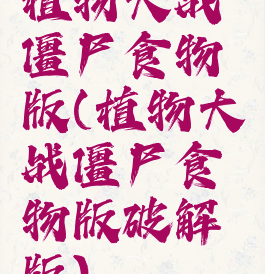 植物大战
僵尸食物
版(植物大
战僵尸食
物版破解
版)